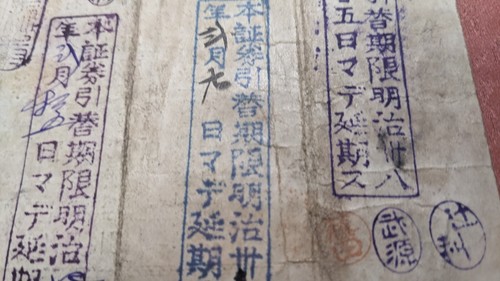 替期限明治卅八
五日マデ延期ス
辻科
武源
本証券引替期限明治卅
年 月七日マデ延期
本証券引替期限明治
年 月 日マデ延期